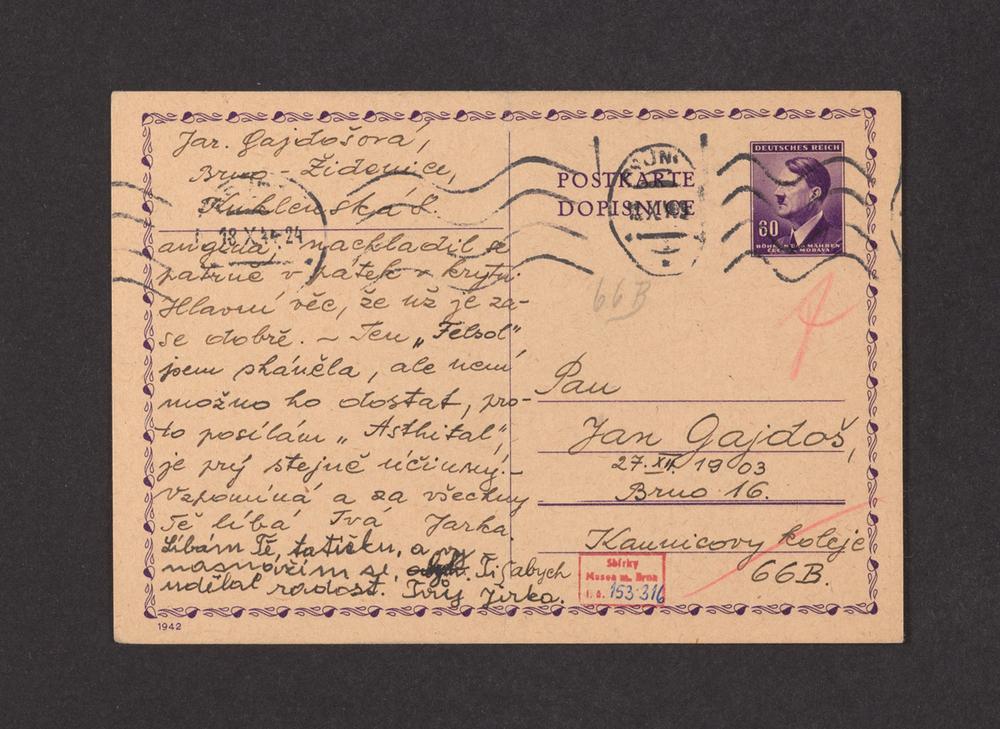 Jar. Gajdošová,
Brno - Židenice,
8.
angina, nachladil se
patrně v pátek v krytu.
Hlavní věc, že už je za-
se dobře. – Ten „Felsol"
jsem sháněla, ale není
možno ho dostat, pro-
to posílám „Asthital",
je prý stejně účinný. –
Vzpomíná a za všechny
Tě líbá Tvá Jarka.
Líbám Tě, tatíčku, a
se, Ti, abych
udělal radost. Tvůj Jirka.
1942
POSTKARTE
DOPISNICE
18 X 44-24
DEUTSCHES REICH
60
BÖHMEN UND MÄHREN
ČECHY A MORAVA
66B
Pan
Jan Gajdoš,
27. XII. 1903
Brno 16.
Kaunicovy koleje
66B.
Sbírky
Musea m. Brna
i. č. 153.316